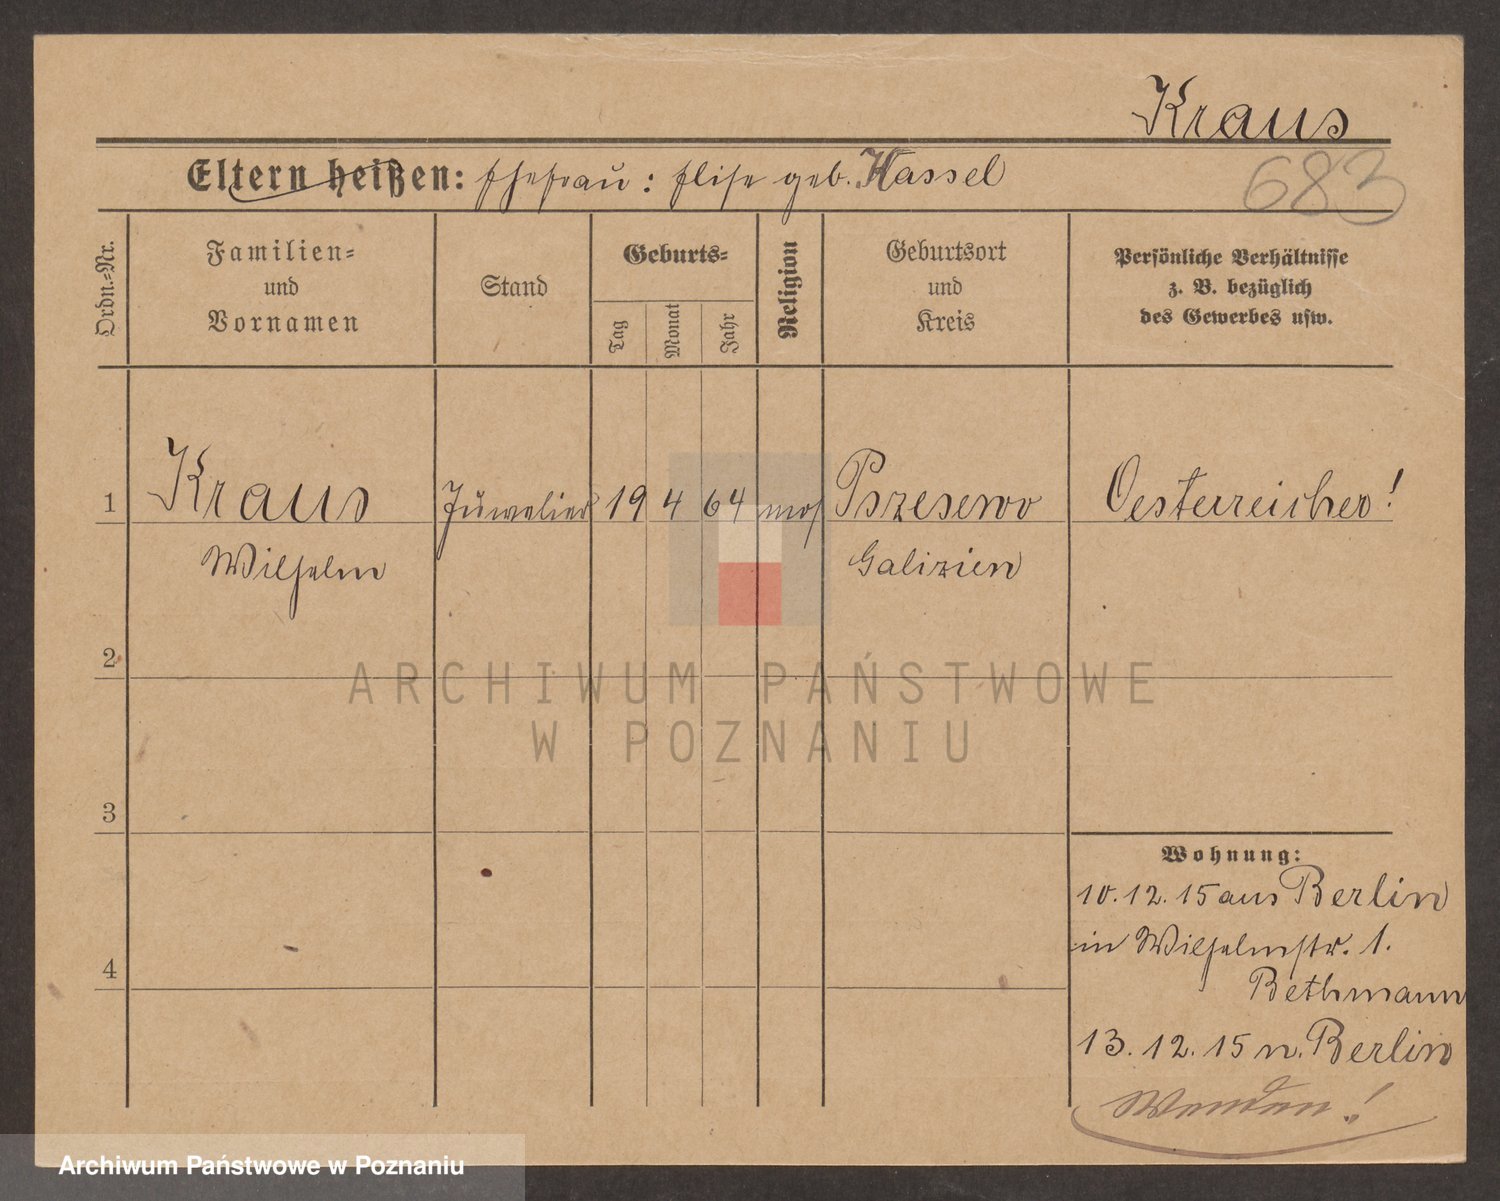 Kraus
Eltern heißen: Ehefrau: Elise geb. Hassel
683
Ordn.=Nr.
Familien=
und
Vornamen
Stand
Geburts=
Tag
Monat
Jahr
Religion
Geburtsort
und
Kreis
Persönliche Verhältnisse
z. B. bezüglich
des Gewerbes usw.
1
Kraus
Juwelier
19 4 64
mos
Pszesewo
Oesterreicher!
Wilhelm
Galizien
2
ARCHIWUM PAŃSTWOWE
W POZNANIU
3
Wohnung:
10.12.15 aus Berlin
in Wilhelmstr. 1.
4
Bethmann
13.12.15 n. Berlin
Wenden!
Archiwum Państwowe w Poznaniu